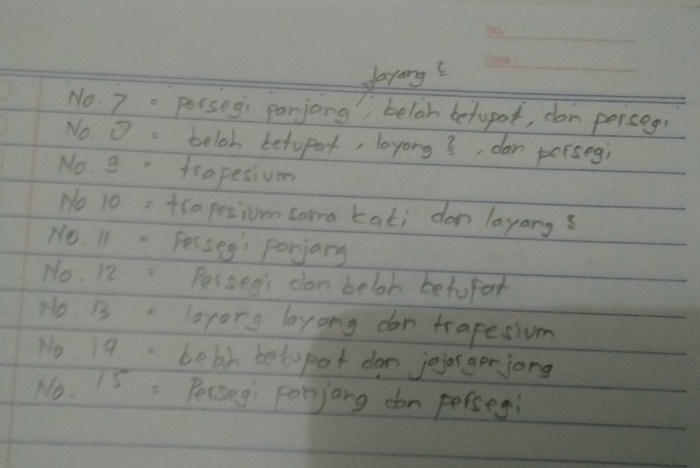 No.
Date
layang 2
No. 7 = persegi panjang, belah ketupat, dan persegi
No. 8 = belah ketupat, layang 2, dan persegi
No. 9 = trapesium
No. 10 = trapesium sama kaki dan layang 2
No. 11 = Persegi panjang
No. 12 = Persegi dan belah ketupat
No 13 = layang layang dan trapesium
No 14 = belah ketupat dan jajargenjang
No. 15 = Persegi panjang dan persegi